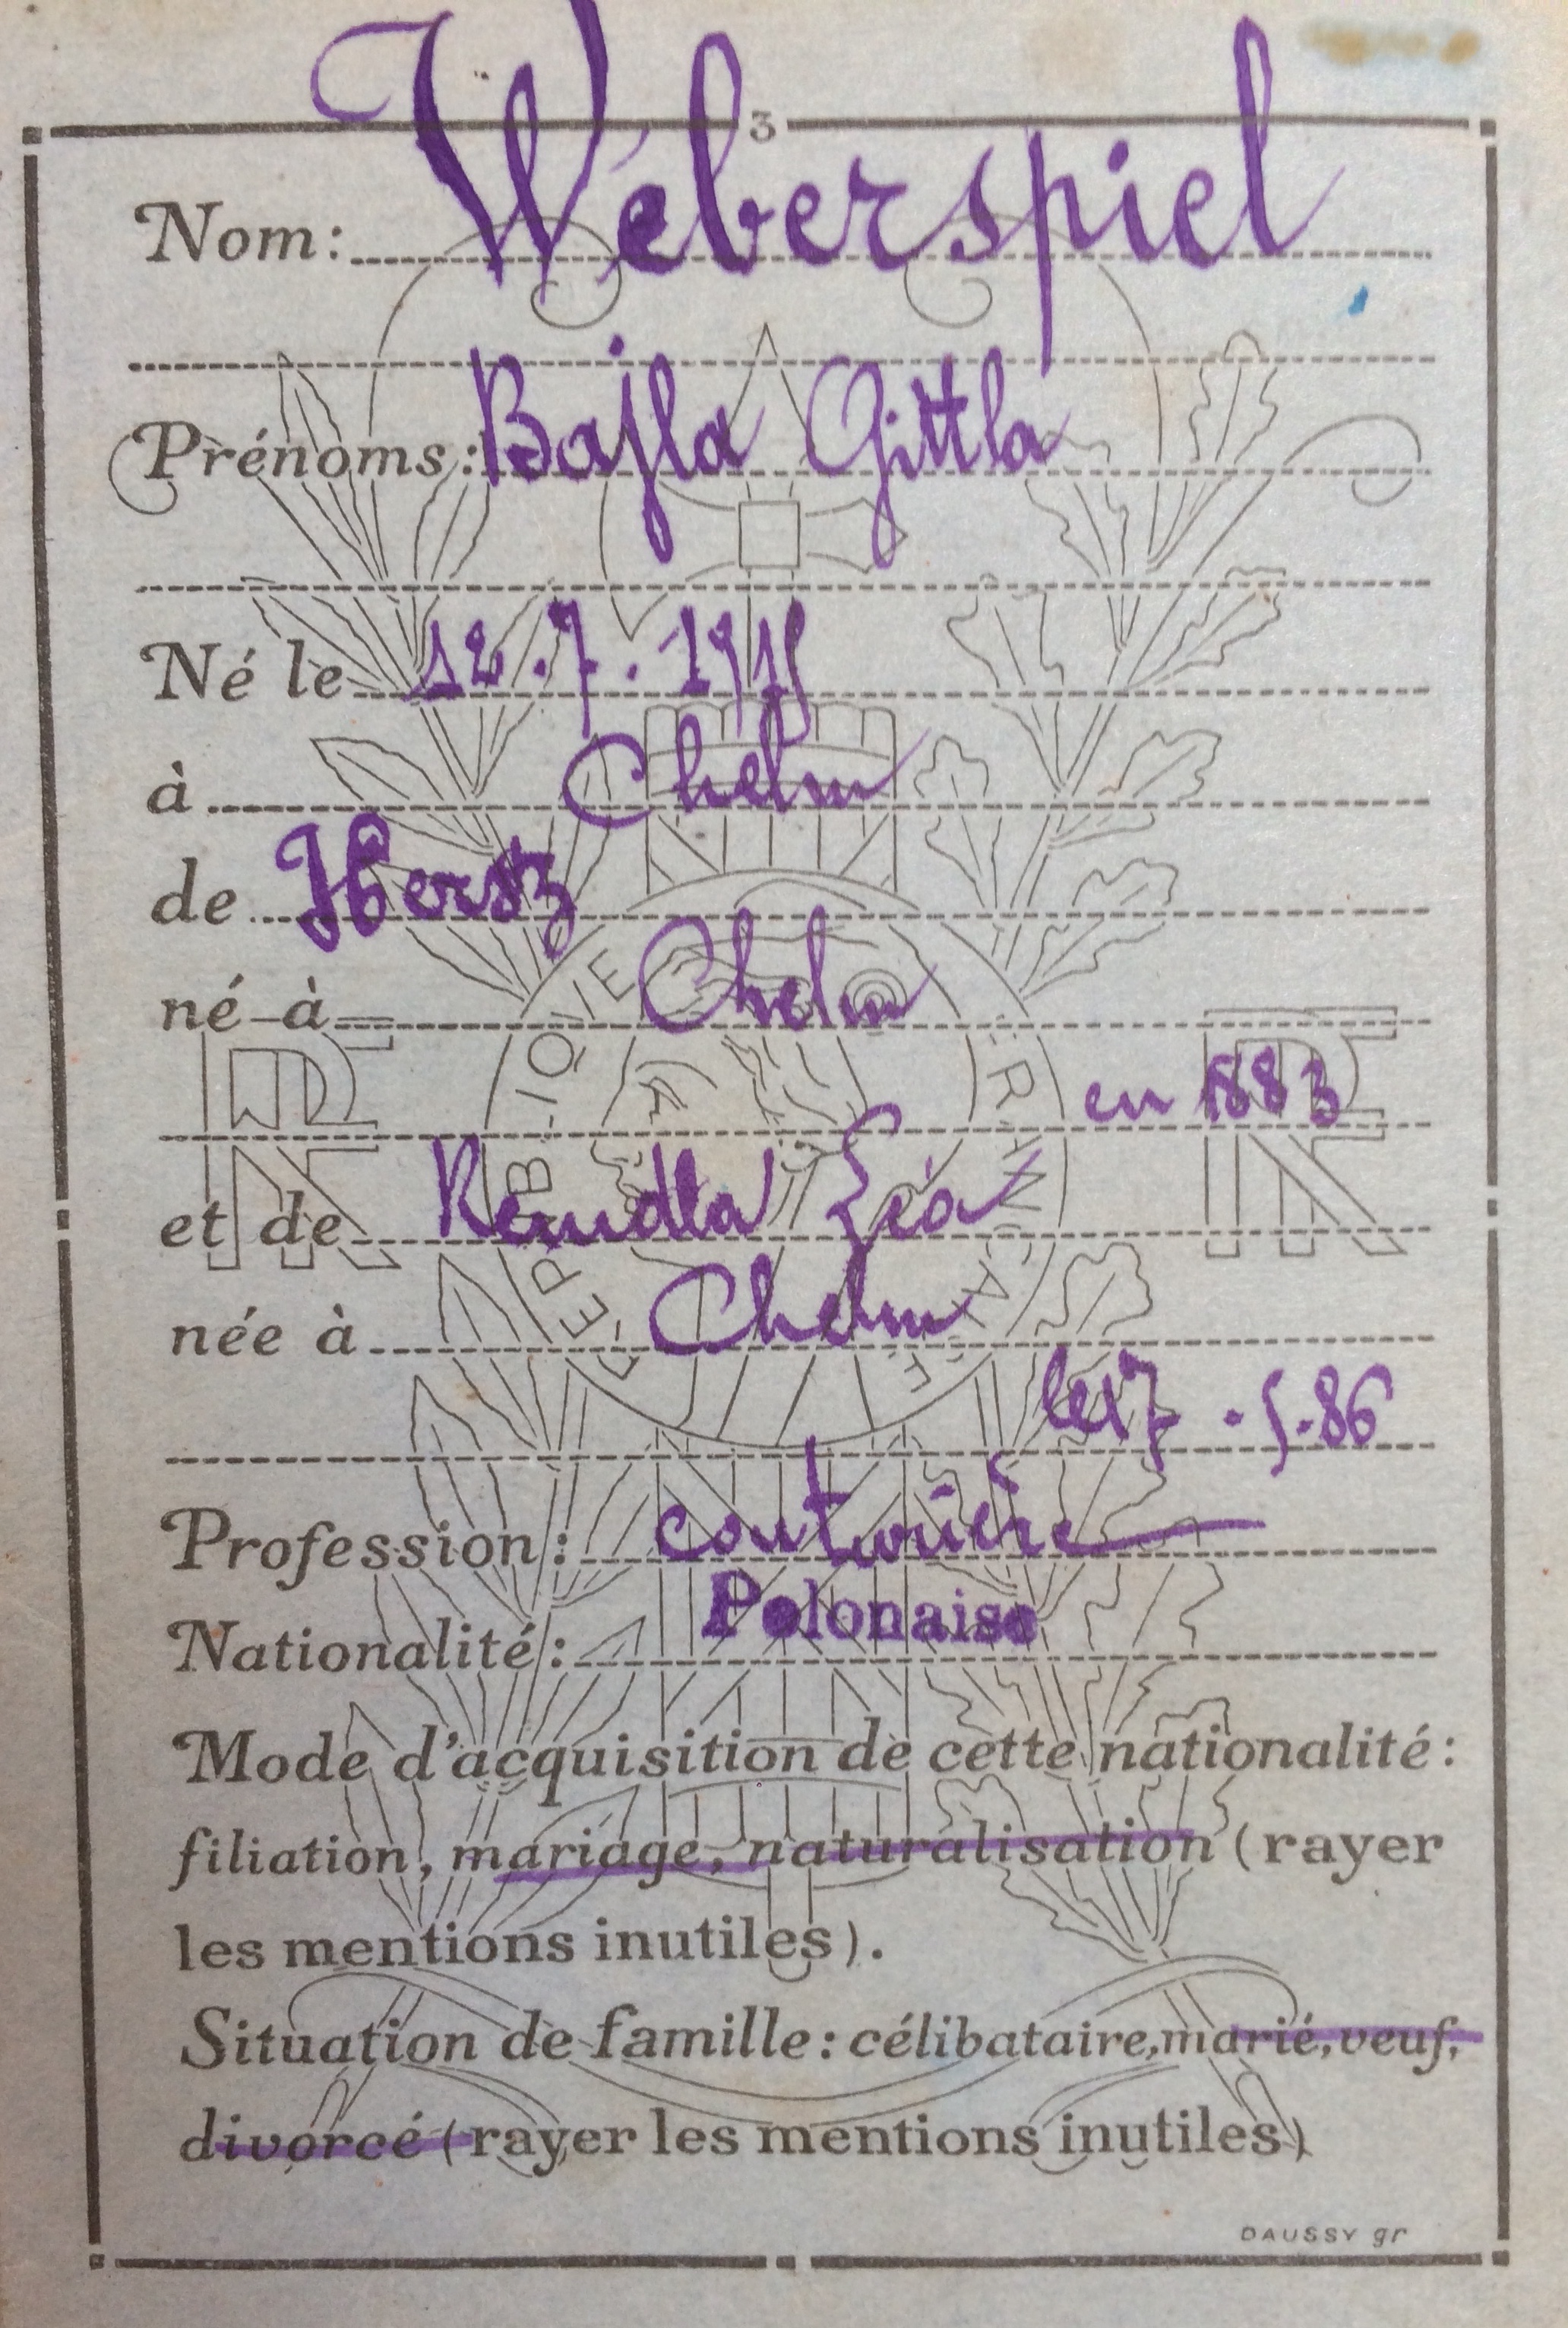 3
Nom: Weberspiel
Prénoms: Bajla Gittla
Né le 12.7.1911
à Chelm
de Hersz
né à Chelm
en 1883
et de
née à Chelm
le 17.5.86
Profession: couturière
Nationalité: Polonaise
Mode d'acquisition de cette nationalité:
filiation, mariage, naturalisation (rayer
les mentions inutiles).
Situation de famille: célibataire, marié, veuf,
divorcé (rayer les mentions inutiles)
DAUSSY gr
RÉPUBLIQUE FRANÇAISE